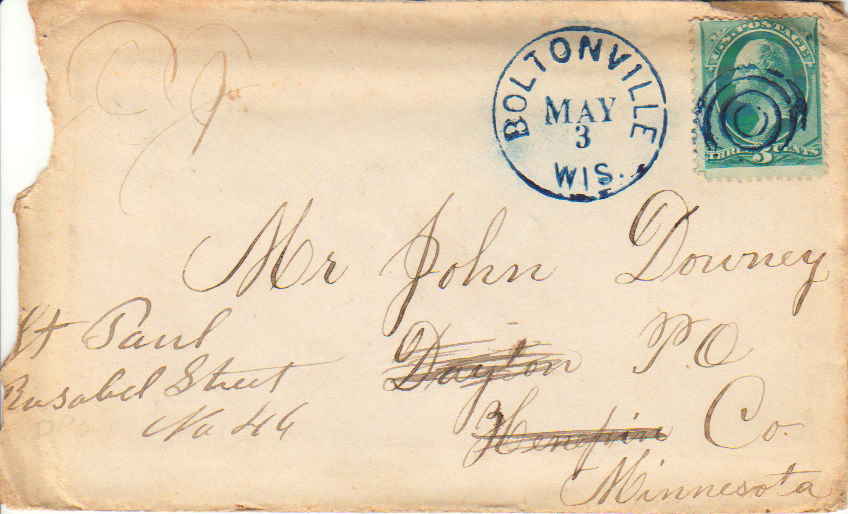 BOLTONVILLE
MAY
3
WIS.
U.S. POSTAGE
THREE 3 CENTS
Mr John Downey
Dayton P.O
Henepin Co.
Minnesota
St Paul
Rosabel Street
No 46